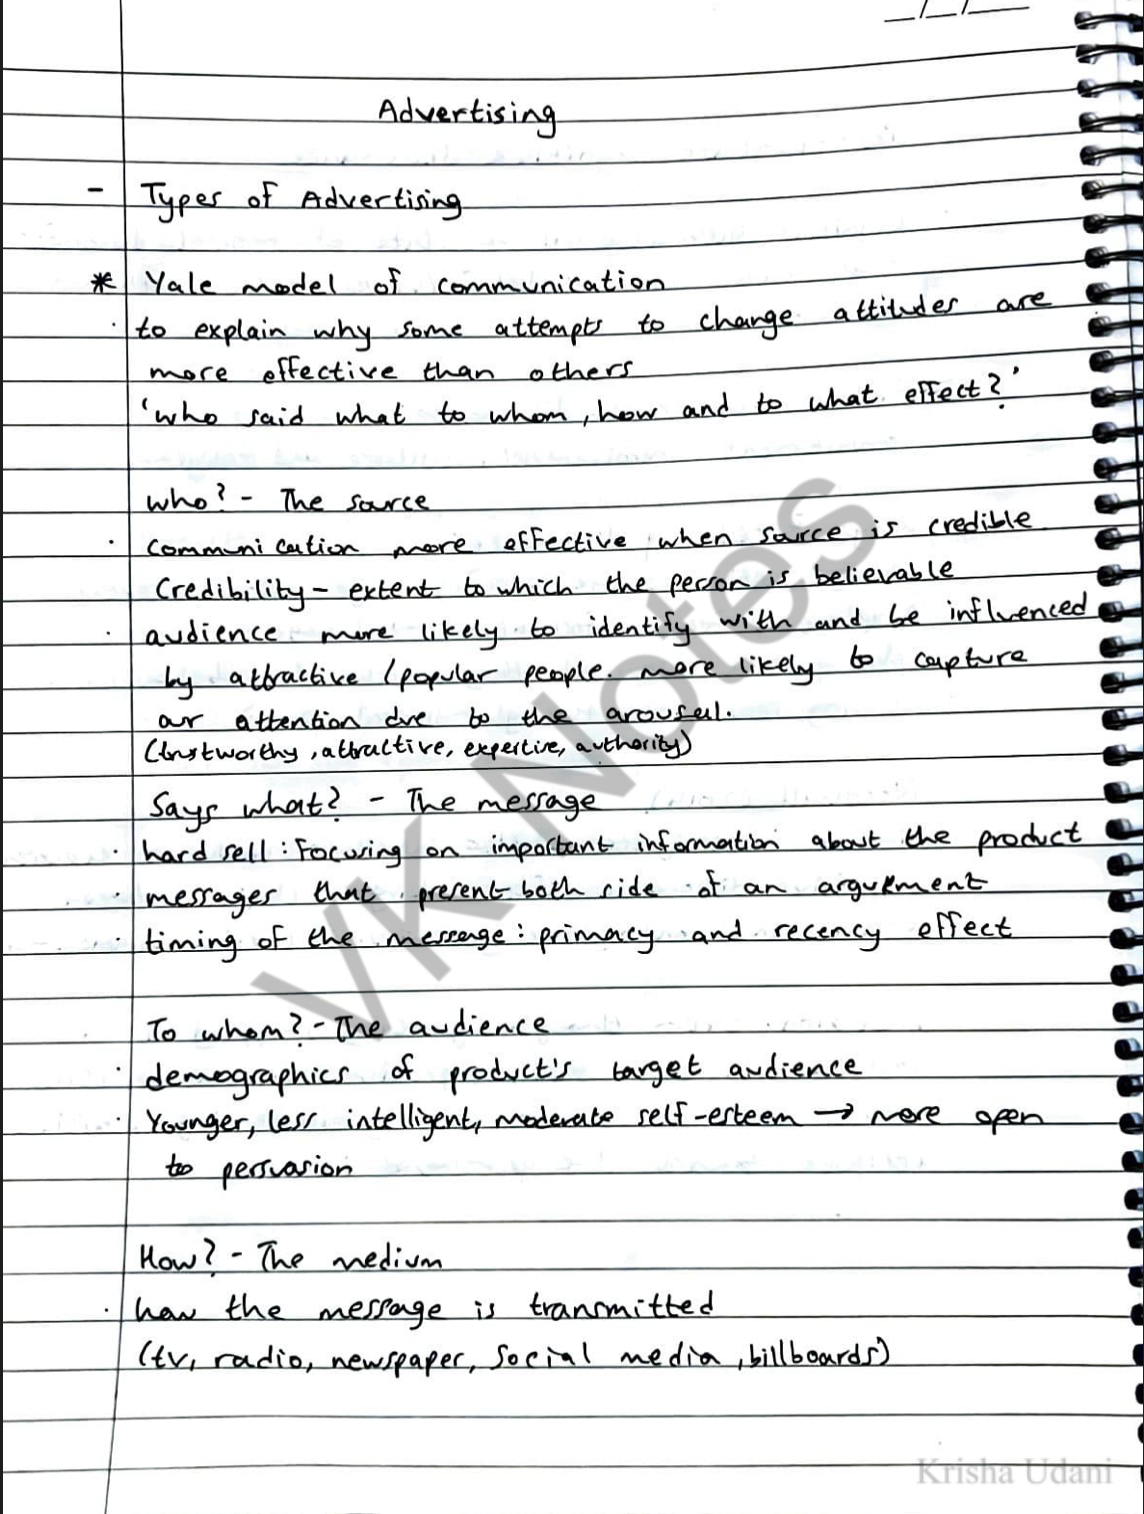 _/_/__
Advertising
- Types of Advertising
* Yale model of communication
· to explain why some attempts to change attitudes are
more effective than others
'who said what to whom, how and to what effect?'
who? - The source
· communication more effective when source is credible
Credibility - extent to which the person is believable
· audience more likely to identify with and be influenced
by attractive /popular people. more likely to capture
our attention due to the arousal.
(trustworthy, attractive, expertise, authority)
Says what? - The message
· hard sell: Focusing on important information about the product
· messages that present both side of an argument
· timing of the message: primacy and recency effect
To whom? - The audience
· demographics of product's target audience
· Younger, less intelligent, moderate self-esteem → more open
to persuasion
How? - The medium
· how the message is transmitted
(tv, radio, newspaper, social media, billboards)
VK Notes
Krisha Udani